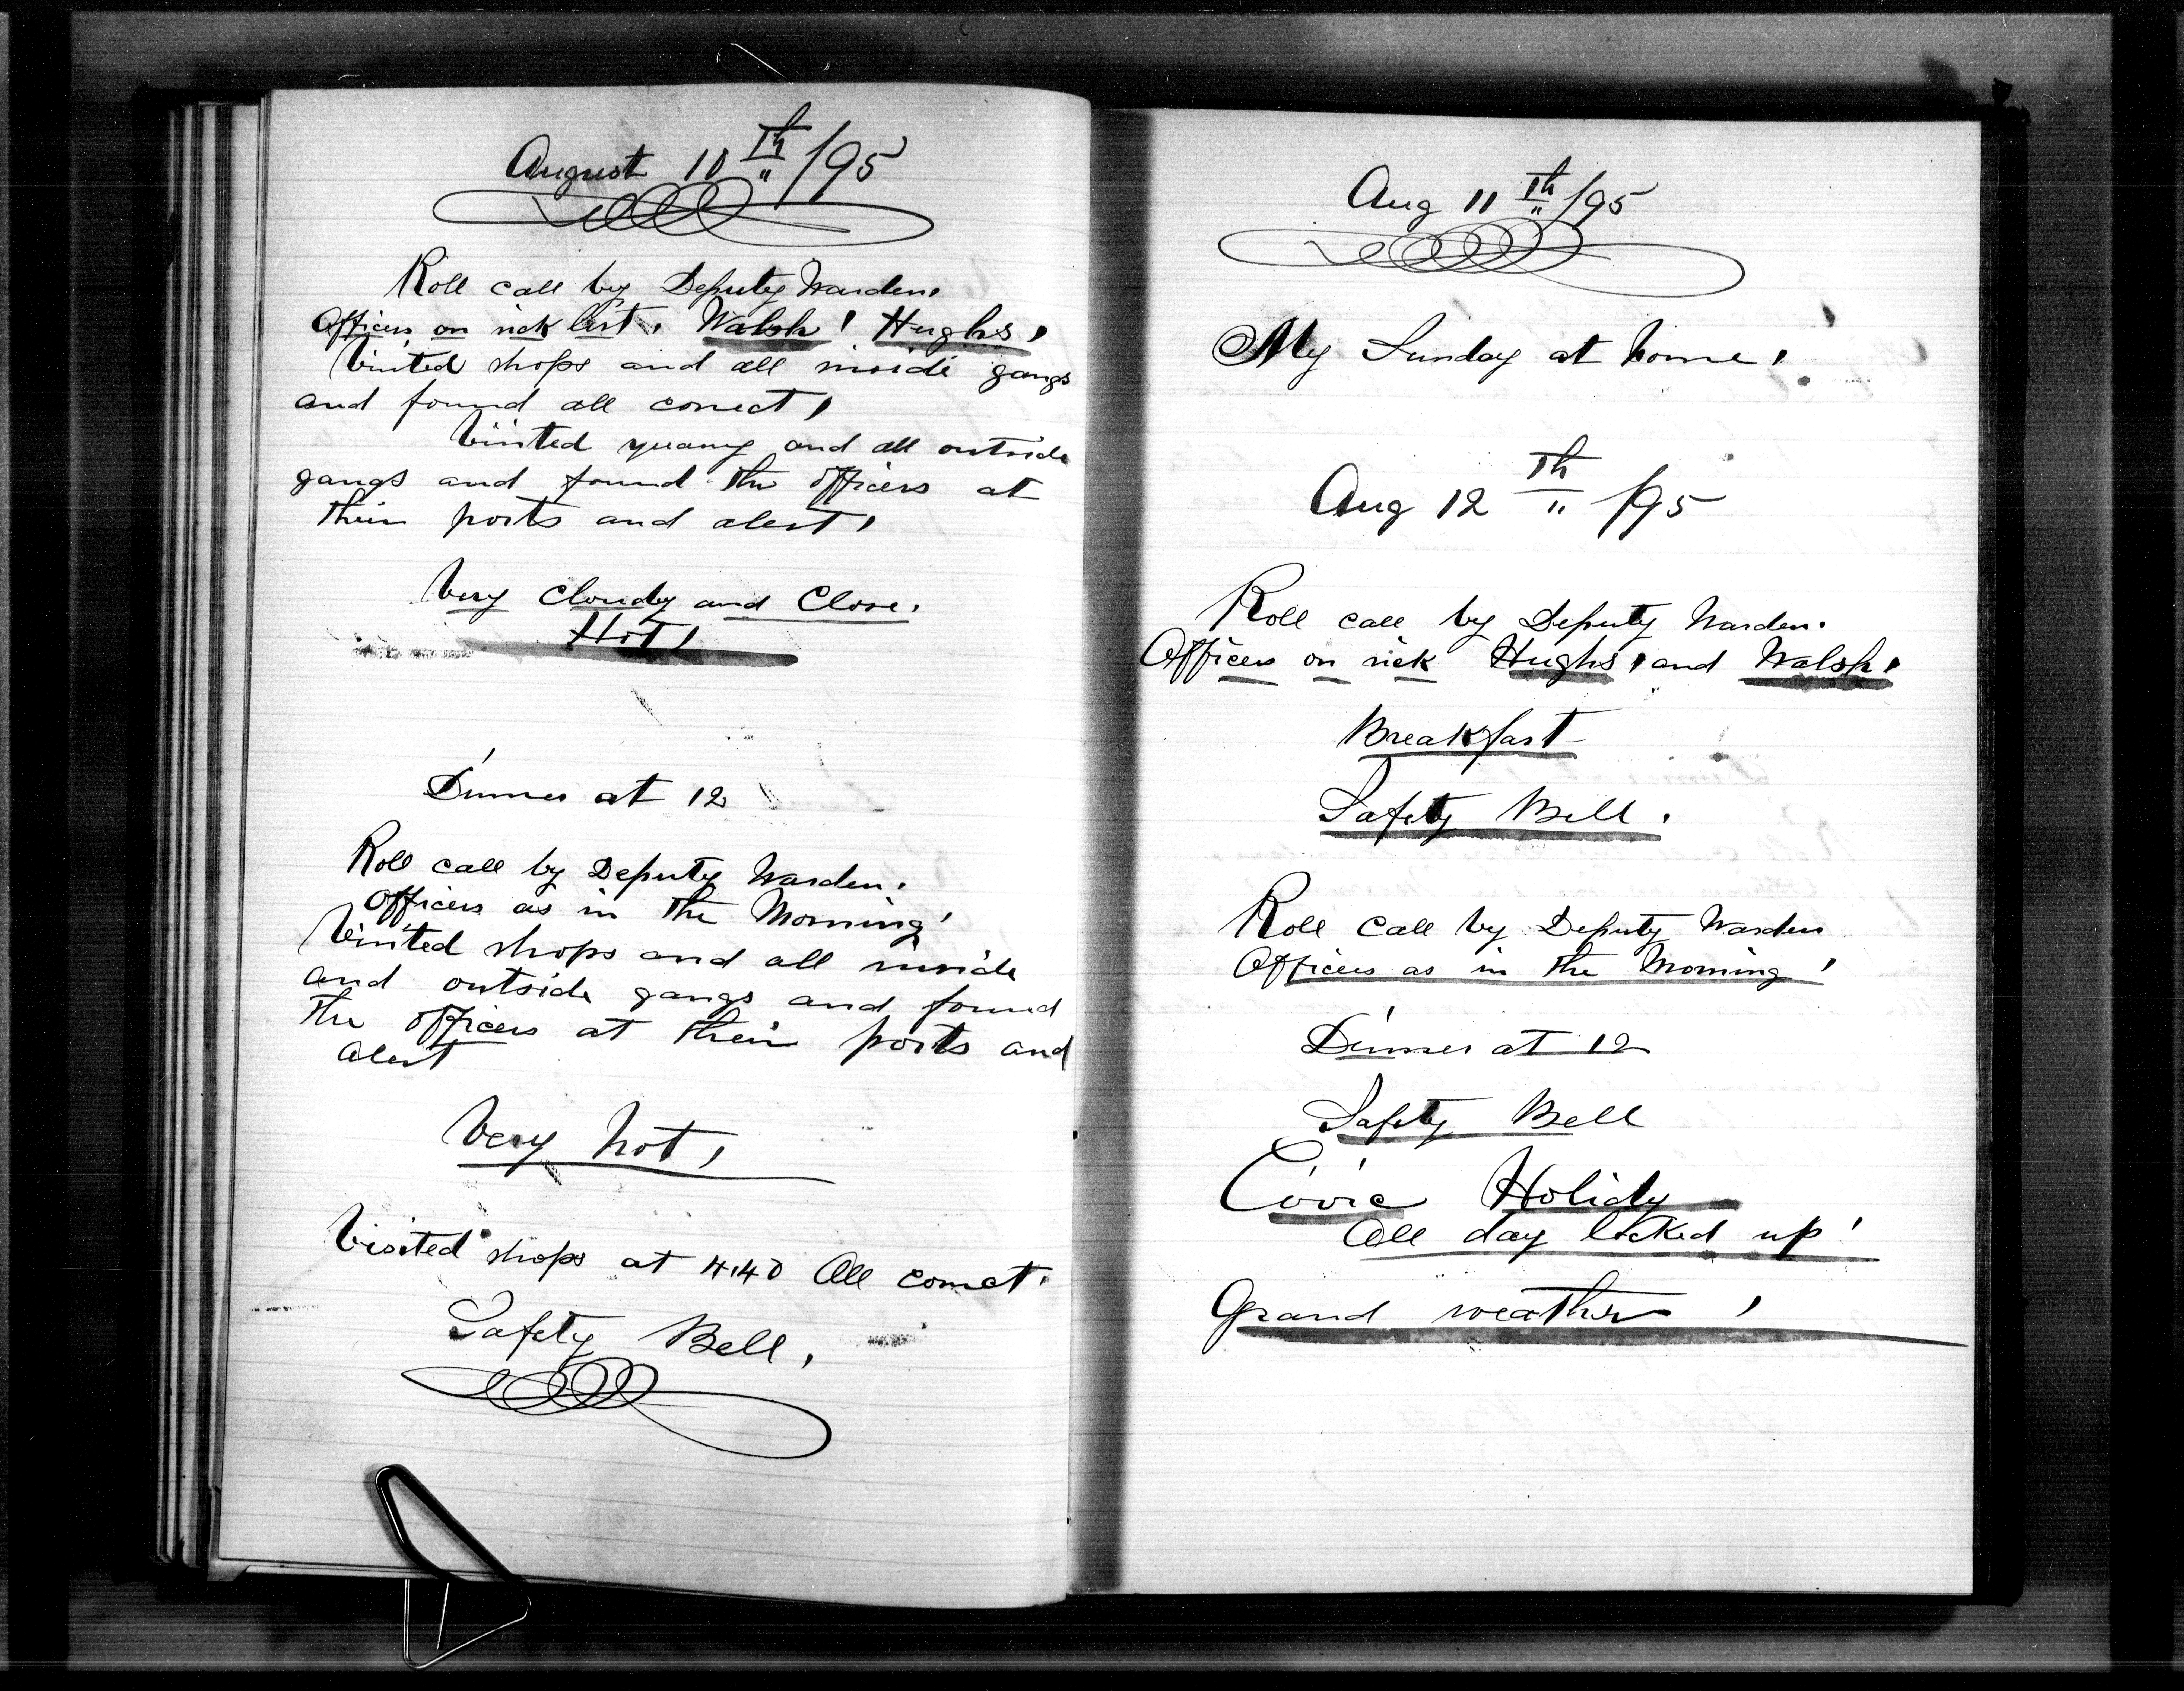 August 10th /95
Roll call by Deputy Warden.
Officers on sick list, Walsh! Hughs,
Visited shops and all inside gangs
and found all correct,
Visited quarry and all outside
gangs and found the officers at
their posts and alert,
Very Cloudy and Close.
Hot,
Dinner at 12
Roll call by Deputy Warden.
Officers as in the Morning!
Visited shops and all inside
and outside gangs and found
the officers at their posts and
alert
Very hot,
Visited shops at 4.40 All correct.
Safety Bell,
Aug 11th /95
My Sunday at home,
Aug 12th /95
Roll call by Deputy Warden.
Officers on sick Hughs, and Walsh,
Breakfast
Safety Bell.
Roll call by Deputy Warden
Officers as in the Morning!
Dinner at 12
Safety Bell
Civic Holidy
All day locked up!
Grand weather,